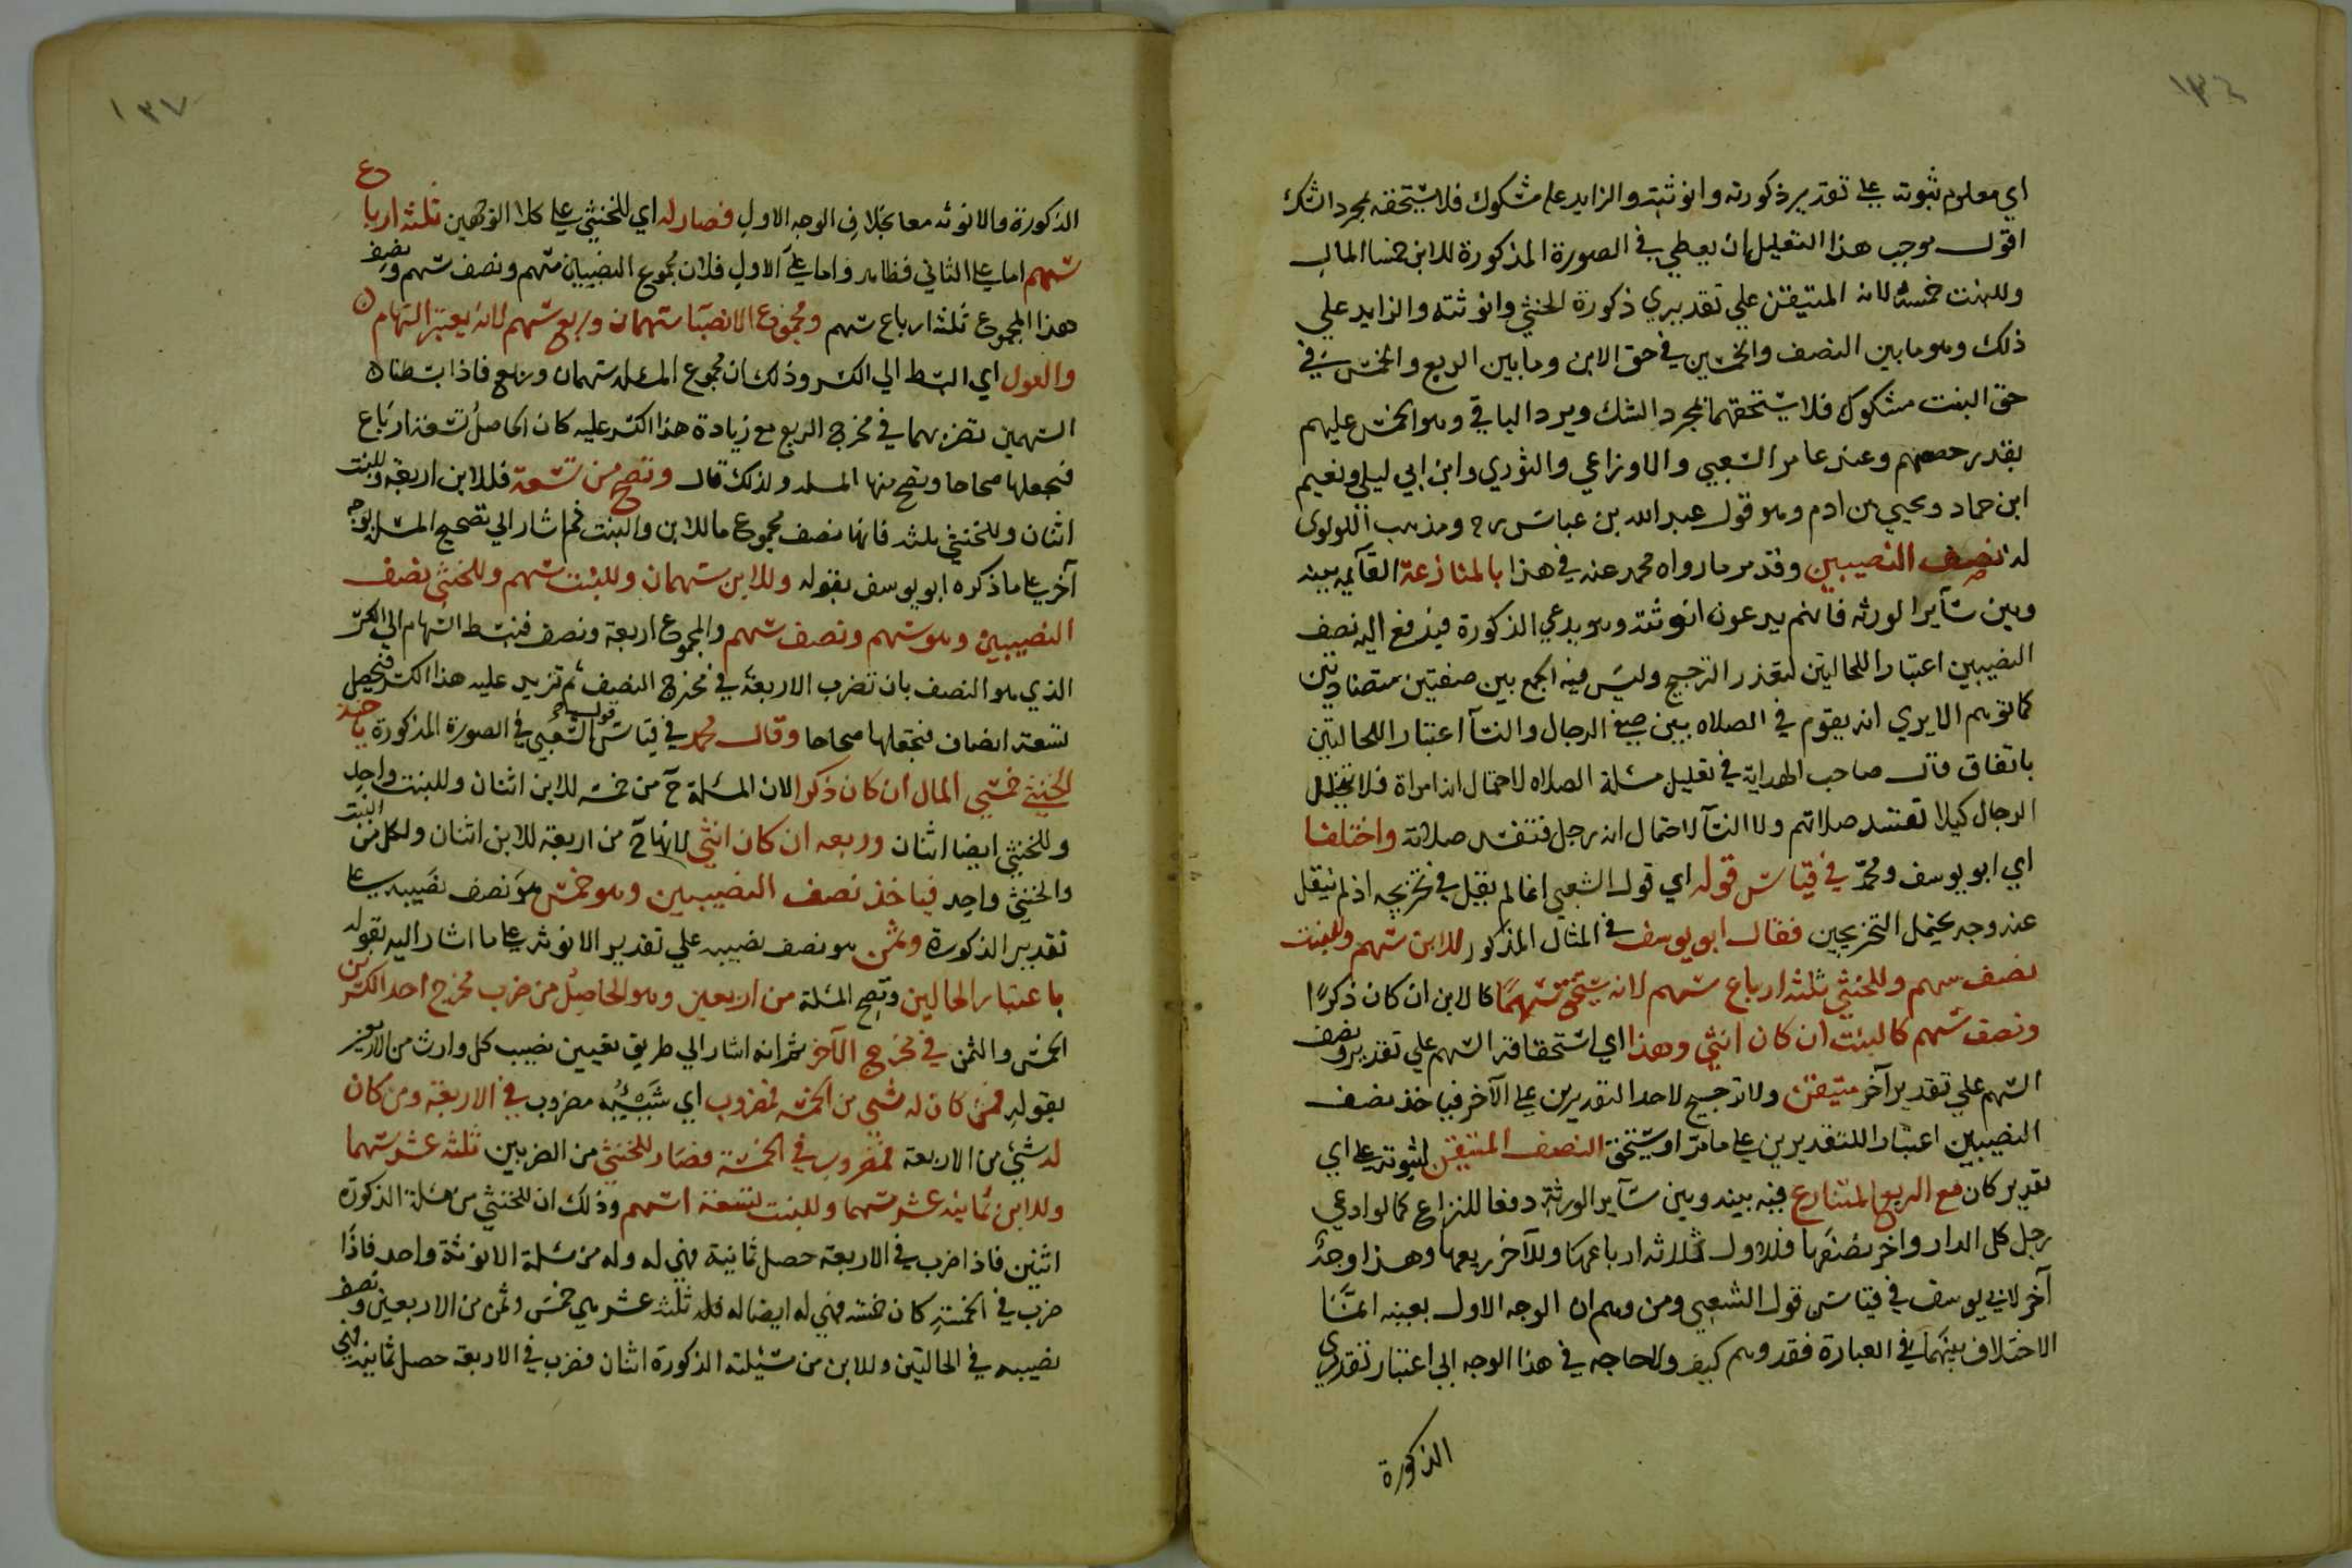 ١٣٦
اي معلوم ثبوته علي تقدير ذكورته وانوثيته والزايد عليه مشكوك فلا يستحقه بمجرد الشك
اقول موجب هذا التعليل ان يعطي في الصورة المذكورة للابن خمسا المال
وللبنت خمسه لانه المتيقن علي تقديري ذكورة الخنثي وانوثته والزايد علي
ذلك وهو ما بين النصف والخمسين في حق الابن وما بين الربع والخمس في
حق البنت مشكوك فلا يستحقهما بمجرد الشك ويرد الباقي وهو الخمس عليهم
بقدر حصصهم وعند عامر الشعبي والاوزاعي والثوري وابن ابي ليلي ونعيم
ابن حماد ويحيي بن ادم وهو قول عبد الله بن عباس رح ومذهب اللولوي
له نصف النصيبين وقد مر ما رواه محمد عنه في هذا بالمنازعة القآيمه بينه
وبين سآير الورثه فانهم يدعون انوثته وهو يدعي الذكورة فيدفع اليه نصف
النصيبين اعتبارا للحالتين لتعذر الترجيح وليس فيه الجمع بين صفتين متضادتين
كما توهم الا يري انه يقوم في الصلاه بين صف الرجال والنسآ اعتبارا للحالتين
باتفاق قال صاحب الهداية في تعليل مسئلة الصلاه لاحتمال انه امراة فلا يتخلل
الرجال كيلا تفسد صلاتهم ولا النسآ لاحتمال انه رجل فتفسد صلاته واختلفا
اي ابو يوسف ومحمد في قياس قوله اي قول الشعبي انما لم يقبل في تخريجه اذ لم ينقل
عنه وجه يحتمل التخريجين فقال ابو يوسف في المثال المذكور للابن سهم وللبنت
نصف سهم وللخنثي ثلثه ارباع سهم لانه يستحق سهما كالابن ان كان ذكرا
ونصف سهم كالبنت ان كان انثي وهذا اي استحقاقه السهم علي تقدير ونصف
السهم علي تقدير آخر متيقن ولا ترجيح لاحد التقديرين علي الآخر فياخذ نصف
النصيبين اعتبارا للتقديرين علي ما مر او يستحق النصف المتيقن لثبوته علي اي
تقدير كان مع الربع المتنازع فيه بينه وبين سآير الورثة دفعا للنزاع كما لو ادعي
رجل كل الدار واخر نصفها فللاول ثلاثه ارباعها وللآخر ربعها وهذا وجه
آخر لابي يوسف في قياس قول الشعبي ومن وهم ان الوجه الاول بعينه انما
الاختلاف بينهما في العبارة فقد وهم كيف ولا حاجه في هذا الوجه الي اعتبار تقديري
الذكورة
١٣٧
الذكورة والانوثه معا بخلاف الوجه الاول فصار له اي للخنثي علي كلا الوجهين ثلثه ارباع
سهم اما علي الثاني فظاهر واما علي الاول فلان مجموع النصيبين سهم ونصف سهم ونصف
هذا المجموع ثلثه ارباع سهم ومجموع الانصبآ سهمان وربع سهم لانه يعتبر السهام
والعول اي البسط الي الكسر وذلك ان مجموع المسئلة سهمان وربع فاذا بسطنا
السهمين بضربهما في مخرج الربع مع زيادة هذا الكسر عليه كان الحاصل تسعة ارباع
فنجعلها صحاحا وتصح منها المسئلة ولذلك قال وتصح من تسعة فللابن اربعة وللبنت
اثنان وللخنثي ثلثه فانها نصف مجموع ما للابن والبنت ثم اشار الي تصحيح المسئلة بوجه
آخر علي ما ذكره ابو يوسف بقوله وللابن سهمان وللبنت سهم وللخنثي نصف
النصيبين وهو سهم ونصف سهم والمجموع اربعة ونصف فنبسط السهام الي الكسر
الذي هو النصف بان تضرب الاربعة في مخرج النصف ثم تزيد عليه هذا الكسر فيحصل
تسعة انصاف فنجعلها صحاحا وقال محمد في قياس قول الشعبي في الصورة المذكورة ياخذ
الخنثي خمسي المال ان كان ذكرا لان المسئلة ح من خمسة للابن اثنان وللبنت واحد
وللخنثي ايضا اثنان وربعه ان كان انثي لانها ح من اربعة للابن اثنان ولكل من البنت
والخنثي واحد فياخذ نصف النصيبين وهو خمس هو نصف نصيبه علي
تقدير الذكورة وثمن هو نصف نصيبه علي تقدير الانوثه علي ما اشار اليه بقوله
باعتبار الحالين وتصح المسئلة من اربعين وهو الحاصل من ضرب مخرج احد الكسرين
الخمس والثمن في مخرج الآخر ثم انه اشار الي طريق تعيين نصيب كل وارث من الاربعين
بقوله فمن كان له شي من الخمسة فمضروب اي نصيبه مضروب في الاربعة ومن كان
له شيء من الاربعة فمضروب في الخمسة فصار للخنثي من الضربين ثلثه عشر سهما
وللابن ثمانيه عشر سهما وللبنت تسعة اسهم وذلك ان للخنثي من مسئلة الذكورة
اثنين فاذا ضرب في الاربعة حصل ثمانية فهي له وله من مسئلة الانوثة واحد فاذا
ضرب في الخمسة كان خمسه فهي له ايضا فله ثلثه عشر هي خمس وثمن من الاربعين ونصف
نصيبه في الحالتين وللابن من مسئلة الذكورة اثنان فضرب في الاربعة حصل ثمانية فهي